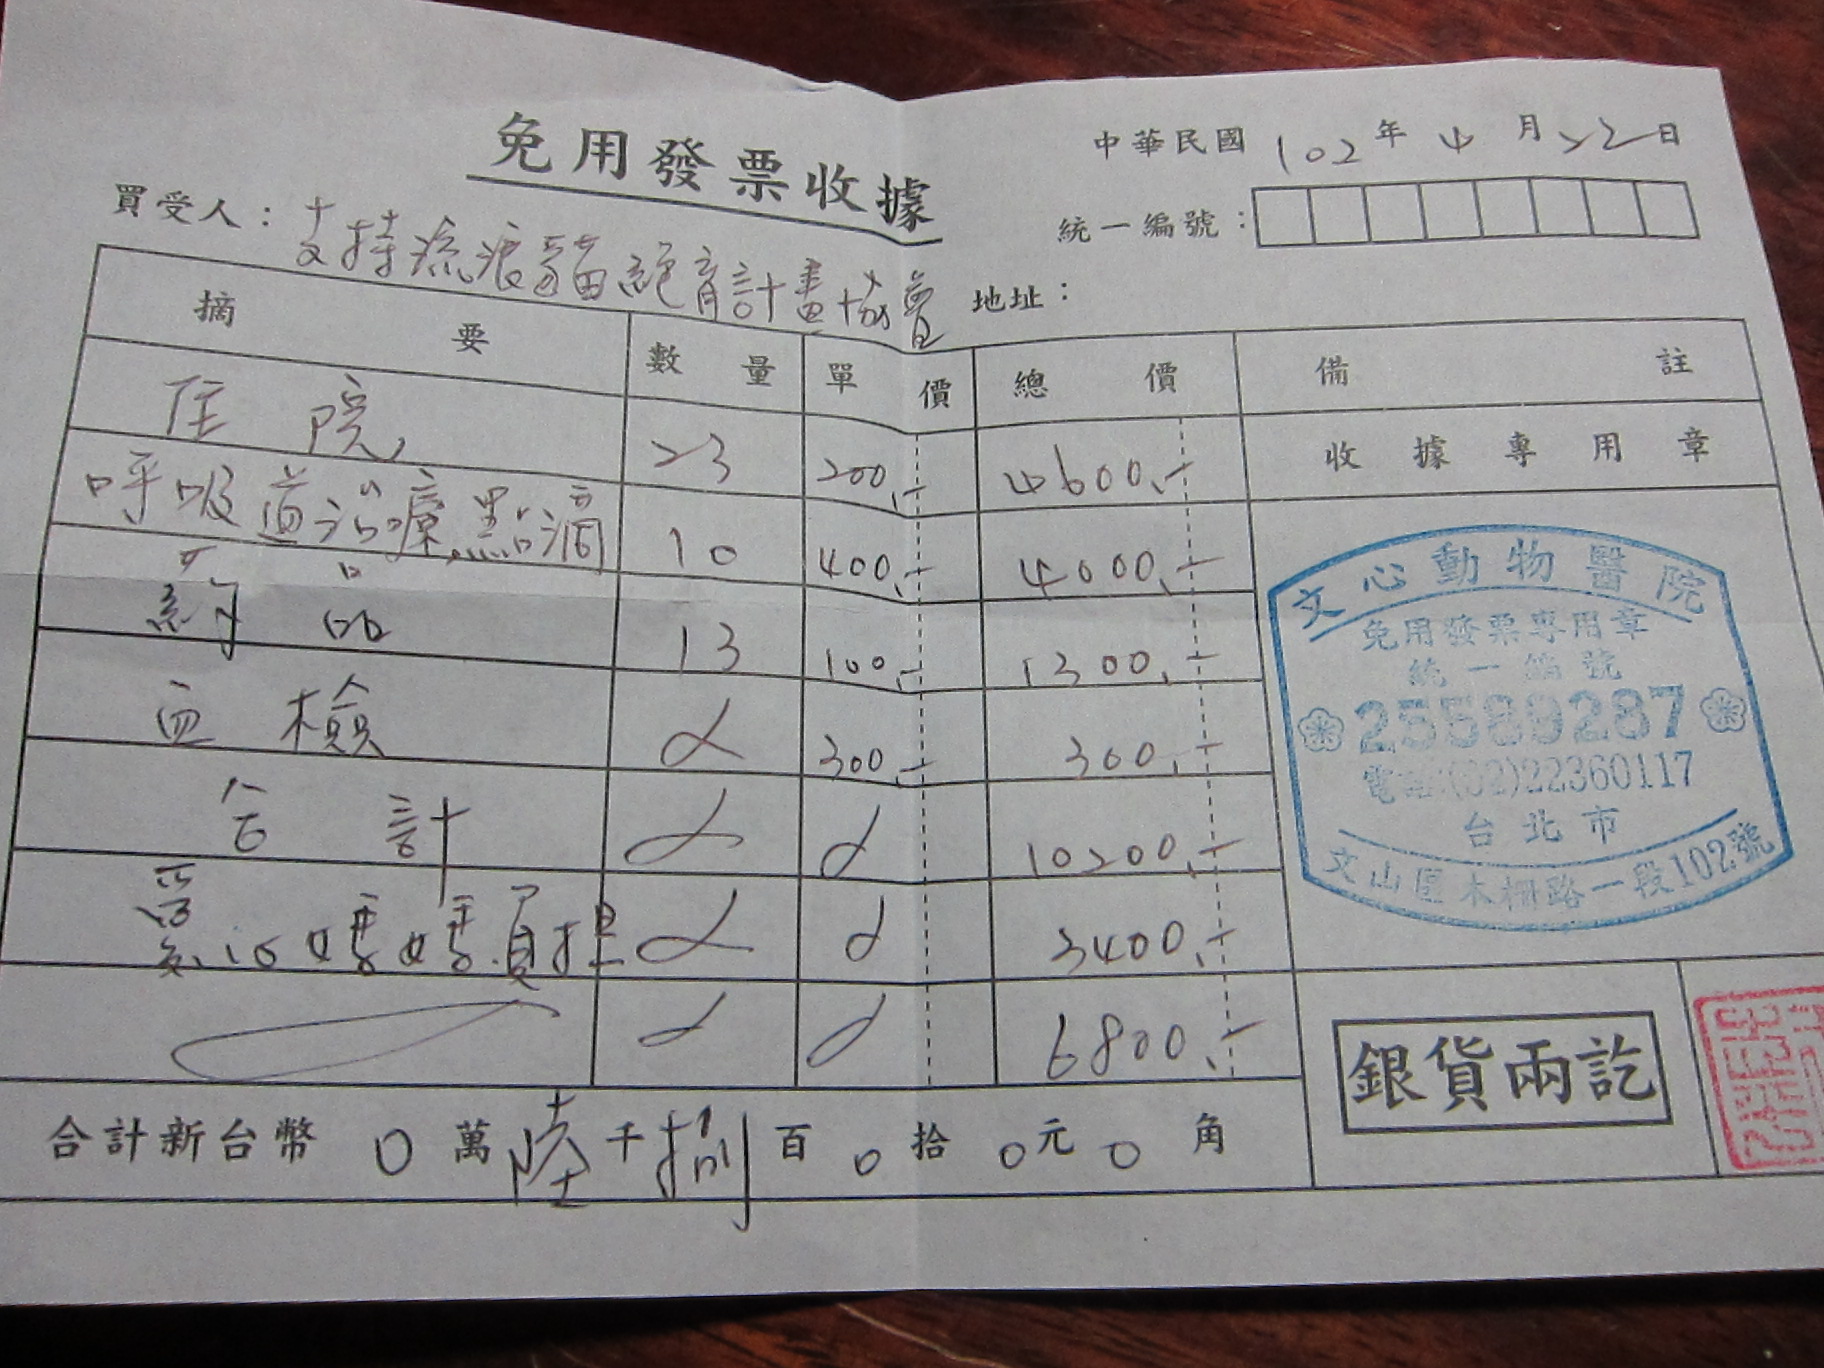 免用發票收據
中華民國 102 年 4 月 22 日
買受人：支持流浪貓絕育計畫協會
統一編號：
地址：
摘要 數量 單價 總價 備註
住院 23 200.- 4600.- 收據專用章
呼吸道治療.點滴 10 400.- 4000.-
藥品 13 100.- 1300.-
血檢 300.- 300.-
合計 10200.-
媽媽負担 3400.-
6800.-
文心動物醫院
免用發票專用章
統一編號
25589287
電話:(02)22360117
台北市
文山區木柵路一段102號
合計新台幣 0 萬 陸 千 捌 百 0 拾 0 元 0 角
銀貨兩訖